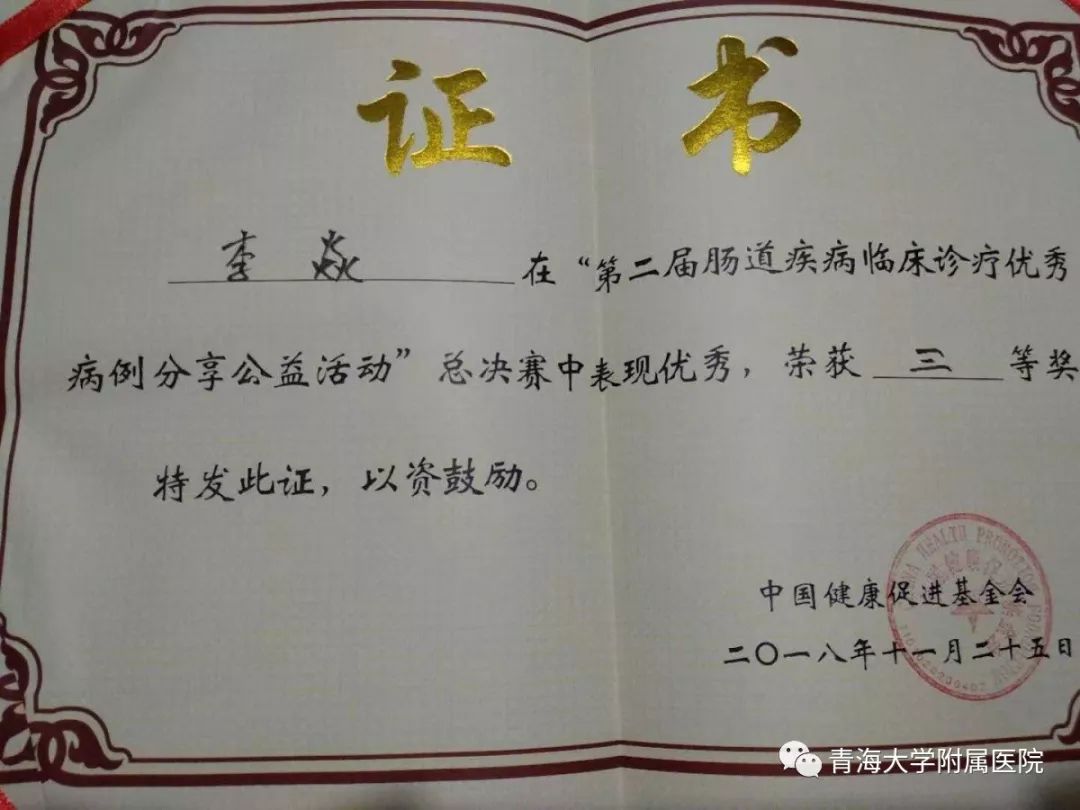 证 书
李 焱 在“第二届肠道疾病临床诊疗优秀
病例分享公益活动”总决赛中表现优秀，荣获 三 等奖
特发此证，以资鼓励。
中国健康促进基金会
二〇一八年十一月二十五日
青海大学附属医院